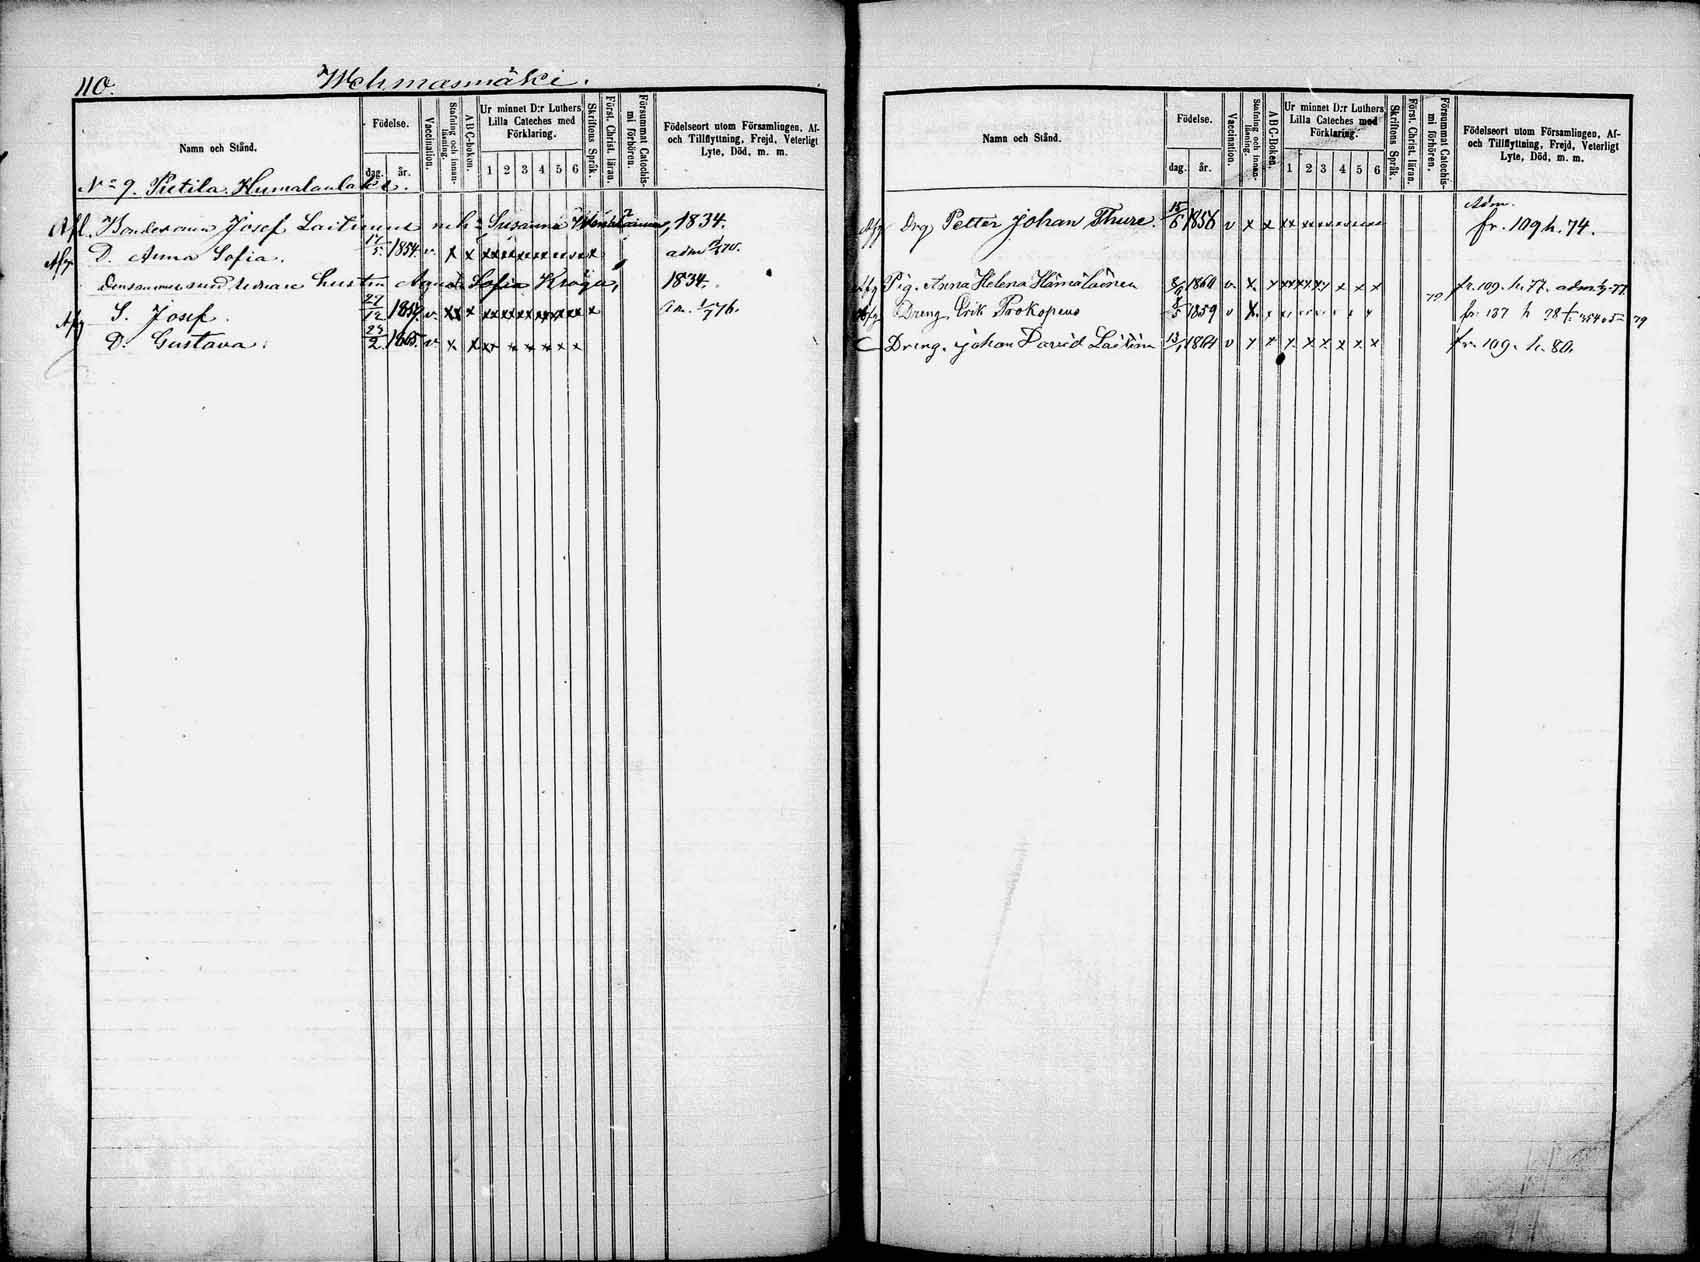 110. Wehmasmäki.
Namn och Stånd.
Födelse.
dag. år.
Vaccination.
Stafning och innan-läsning.
ABC-boken.
Ur minnet D:r Luthers Lilla Cateches med Förklaring.
1 2 3 4 5 6
Skriftens Språk.
Först. Christ. läran.
Försummat Catechis-mi förhören.
Födelseort utom Församlingen, Af- och Tillflyttning, Frejd, Veterligt Lyte, Död, m. m.
No 9. Pietilä
Afl. Bondesonen Josef Laitinens enka Susanna 1834.
D. Anna Sofia. 5. 1854. v. x x x x x x x x x
Sofia 1834.
S. Josef. 27/12 v. x x x x x x x x x
D. Gustava. 23/2. 1865. v x x x x x x x x
Namn och Stånd.
Födelse.
dag. år.
Vaccination.
Stafning och innan-läsning.
ABC-Boken.
Ur minnet D:r Luthers Lilla Cateches med Förklaring.
1 2 3 4 5 6
Skriftens Språk.
Först. Christ. läran.
Försummat Catechis-mi förhören.
Födelseort utom Församlingen, Af- och Tillflyttning, Frejd, Veterligt Lyte, Död, m. m.
Drg Petter Johan Thure. 15/6 1858 v x x x x x x x x Adm. fr. 109 h. 74.
Pig. Anna Helena Hämäläinen 1860 v. x x x x x x x x fr. 109. h. 77.
Dreng Erik Prokopeus 5 1859 v x x x x x x x x fr. 137 h 78 79
Dreng. Johan David Laitinen 13/1 1861 v x x x x x x x x fr. 109. h. 80.